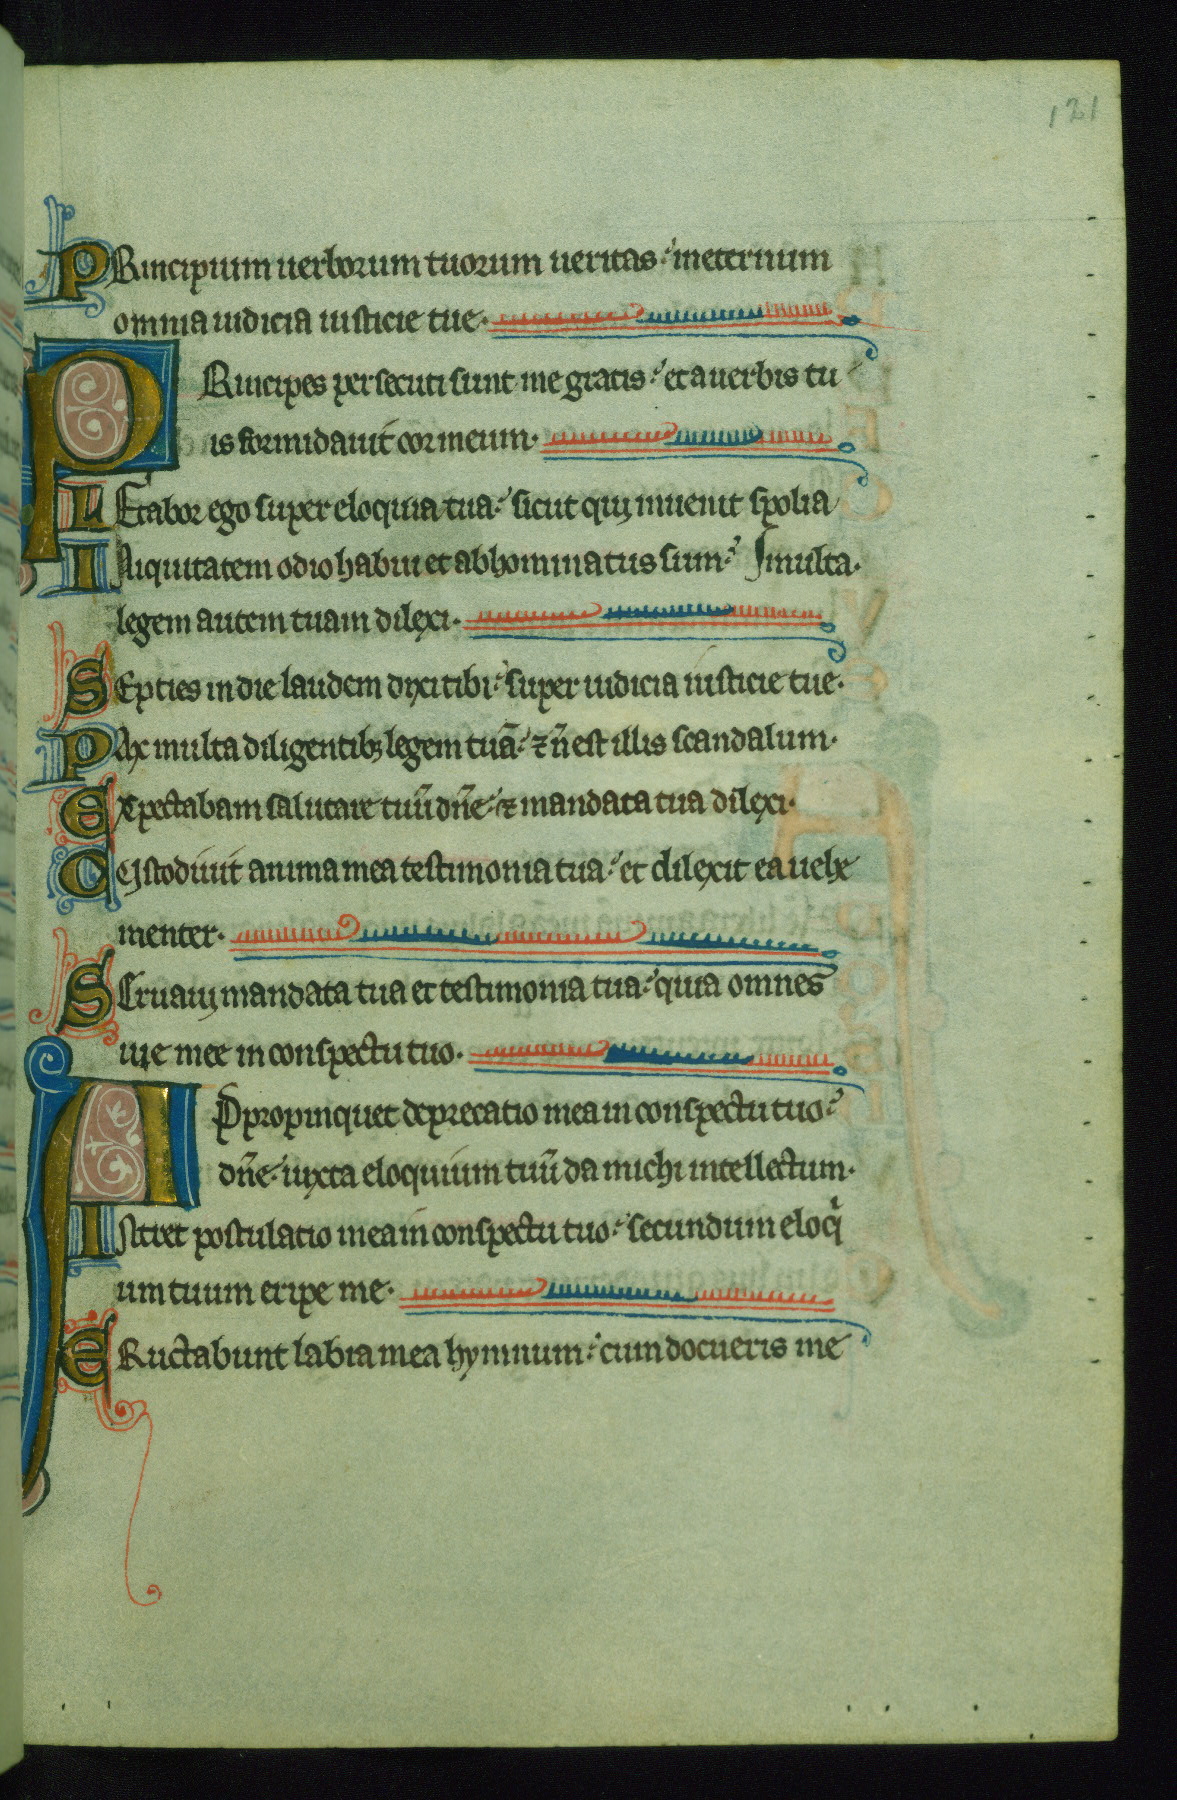 121
PRincipium uerborum tuorum ueritas: ineternum
omnia iudicia iusticie tue.
PRincipes persecuti sunt me gratis: et a uerbis tu
is formidauit cor meum.
LEtabor ego super eloquia tua: sicut qui inuenit spolia
INiquitatem odio habui et abhominatus sum: multa.
legem autem tuam dilexi.
SEpties in die laudem dixi tibi: super iudicia iusticie tue.
PAx multa diligentibꝫ legem tuā: ⁊ ñ est illis scandalum.
EXpectabam salutare tuū dñe: ⁊ mandata tua dilexi.
CUstodiuit anima mea testimonia tua: et dilexit ea uehe
menter.
SEruaui mandata tua et testimonia tua: quia omnes
uie mee in conspectu tuo.
APpropinquet deprecatio mea in conspectu tuo:
dñe: iuxta eloquium tuū da michi intellectum.
INtret postulatio mea in conspectu tuo: secundum eloqͥ
um tuum eripe me.
ERuctabunt labia mea hymnum: cum docueris me